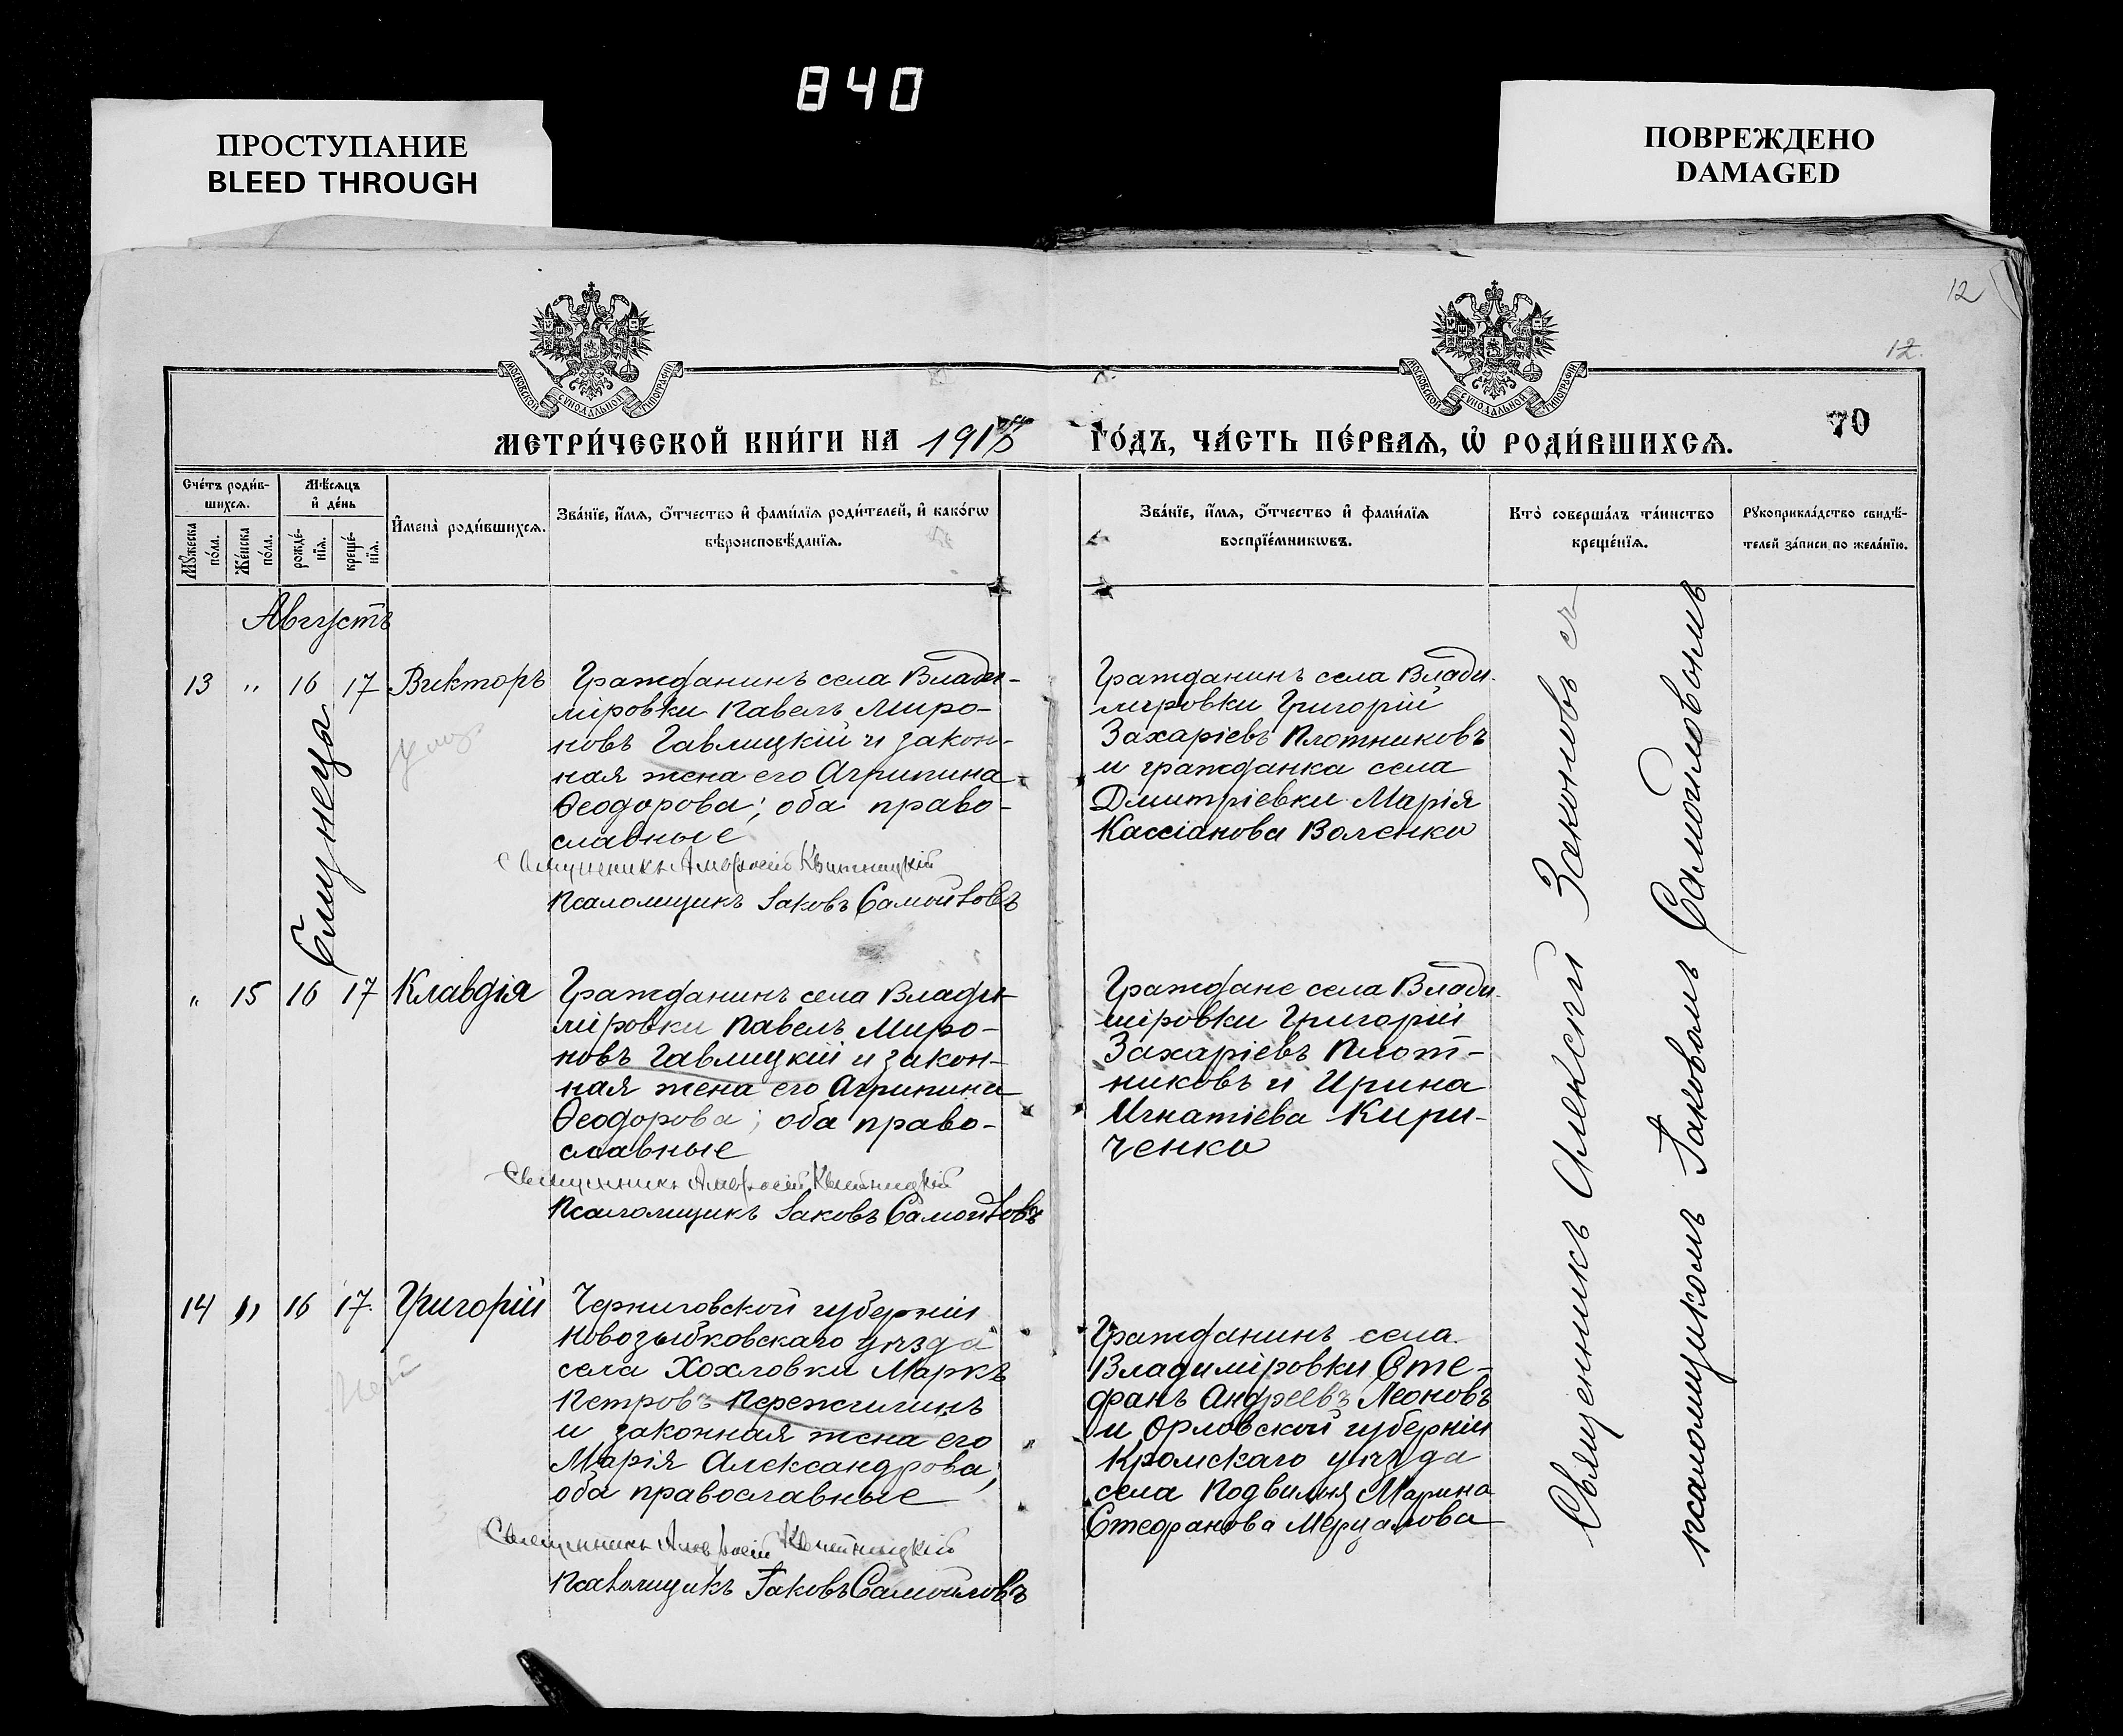 840
ПРОСТУПАНИЕ
BLEED THROUGH
ПОВРЕЖДЕНО
DAMAGED
12
12.
МОСКОВСКОЙ СѴНОДАЛЬНОЙ ТИПОГРАФІИ
МОСКОВСКОЙ СѴНОДАЛЬНОЙ ТИПОГРАФІИ
70
МЕТРИ́ЧЕСКОЙ КНИ́ГИ НА 191
ГО́ДЪ, ЧА́СТЬ ПЕ́РВАѦ, Ѡ҆ РОДИ́ВШИХСѦ.
Сче́тъ роди́в-
шихсѧ.
Мѣ́сѧцъ
и҆ де́нь
Мꙋ́жеска
по́ла.
Же́нска
по́ла.
рожде́-
нїѧ.
креще́-
нїѧ.
И҆мена̀ роди́вшихсѧ.
Зва́нїе, и҆́мѧ, ѻ҆́тчество и҆ фами́лїѧ роди́телей, и҆ како́гѡ
вѣроисповѣ́данїѧ.
Зва́нїе, и҆́мѧ, ѻ҆́тчество и҆ фами́лїѧ
воспрїе́мникѡвъ.
Кто̀ соверша́лъ та́инство
креще́нїѧ.
Рꙋкоприкла́дство свидѣ́-
телей за́писи по жела́нїю.
Августъ
13 " 16 17 Викторъ
Гражданинъ села Влади-
міровки Павелъ Миро-
новъ Гавлицкій и закон-
ная жена его Агрипина
Ѳеодорова; оба право-
славные
Священникъ Амвросій Квитницкій
Псаломщикъ Іаковъ Самойловъ
Гражданинъ села Влади-
міровки Григорій
Захаріевъ Плотниковъ
и гражданка села
Дмитріевки Марія
Кассіанова Воленко
Близнецы
" 15 16 17 Клавдія
Гражданинъ села Влади-
міровки Павелъ Миро-
новъ Гавлицкій и закон-
ная жена его Агрипина
Ѳеодорова; оба право-
славные
Священникъ Амвросій Квитницкій
Псаломщикъ Іаковъ Самойловъ
Граждане села Влади-
міровки Григорій
Захаріевъ Плот-
никовъ и Ирина
Игнатіева Кири-
ченко
14 " 16 17. Григорій
Черниговской губерніи
Новозыбковскаго уѣзда
села Хохловки Маркъ
Петровъ Пережигинъ
и законная жена его
Марія Александрова;
оба православные
Священникъ Амвросій Квитницкій
Псаломщикъ Іаковъ Самойловъ
Гражданинъ села
Владиміровки Сте-
фанъ Андреевъ Леоновъ
и Орловской губерніи
Кромскаго уѣзда
села Марина
Стефанова Мерцалова
Священникъ Алексій Законовъ съ
псаломщикомъ Іаковомъ Самойловымъ